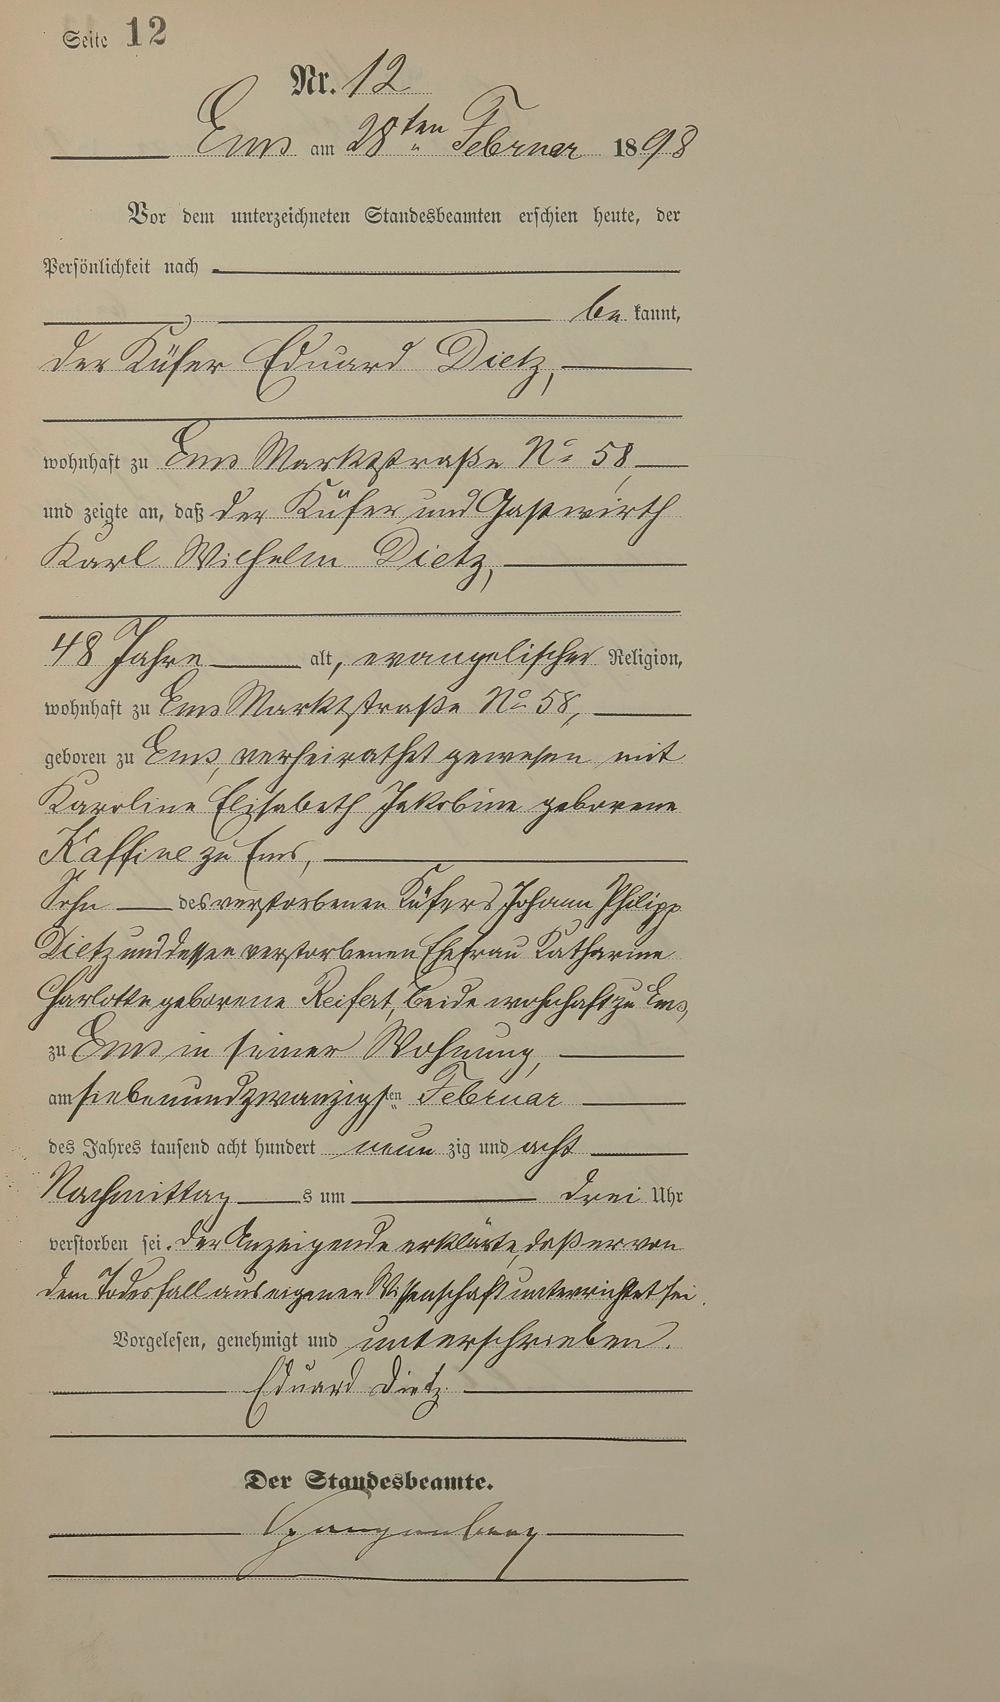 Seite 12
Nr. 12
Ems am 28ten Februar 1898
Vor dem unterzeichneten Standesbeamten erschien heute, der
Persönlichkeit nach
be kannt,
der Küfer Eduard Dietz,
wohnhaft zu Ems Marktstraße No 58,
und zeigte an, daß der Küfer und Gastwirth
Karl Wilhelm Dietz,
48 Jahre alt, evangelischer Religion,
wohnhaft zu Ems Marktstraße No 58,
geboren zu Ems, verheirathet gewesen mit
Karoline Elisabeth Jakobine geborene
Kaffine zu Ems,
Sohn des verstorbenen Küfers Johann Philipp
Dietz und dessen verstorbenen Ehefrau Katharine
Charlotte geborene Reifert, beide wohnhaft zu Ems,
zu Ems in seiner Wohnung,
am siebenundzwanzigsten Februar
des Jahres tausend acht hundert neun zig und acht
Nachmittag s um drei Uhr
verstorben sei. Der Anzeigende erklärte, daß er von
dem Todesfall aus eigener Wissenschaft unterrichtet sei.
Vorgelesen, genehmigt und unterschrieben.
Eduard Dietz
Der Standesbeamte.
Spangenberg